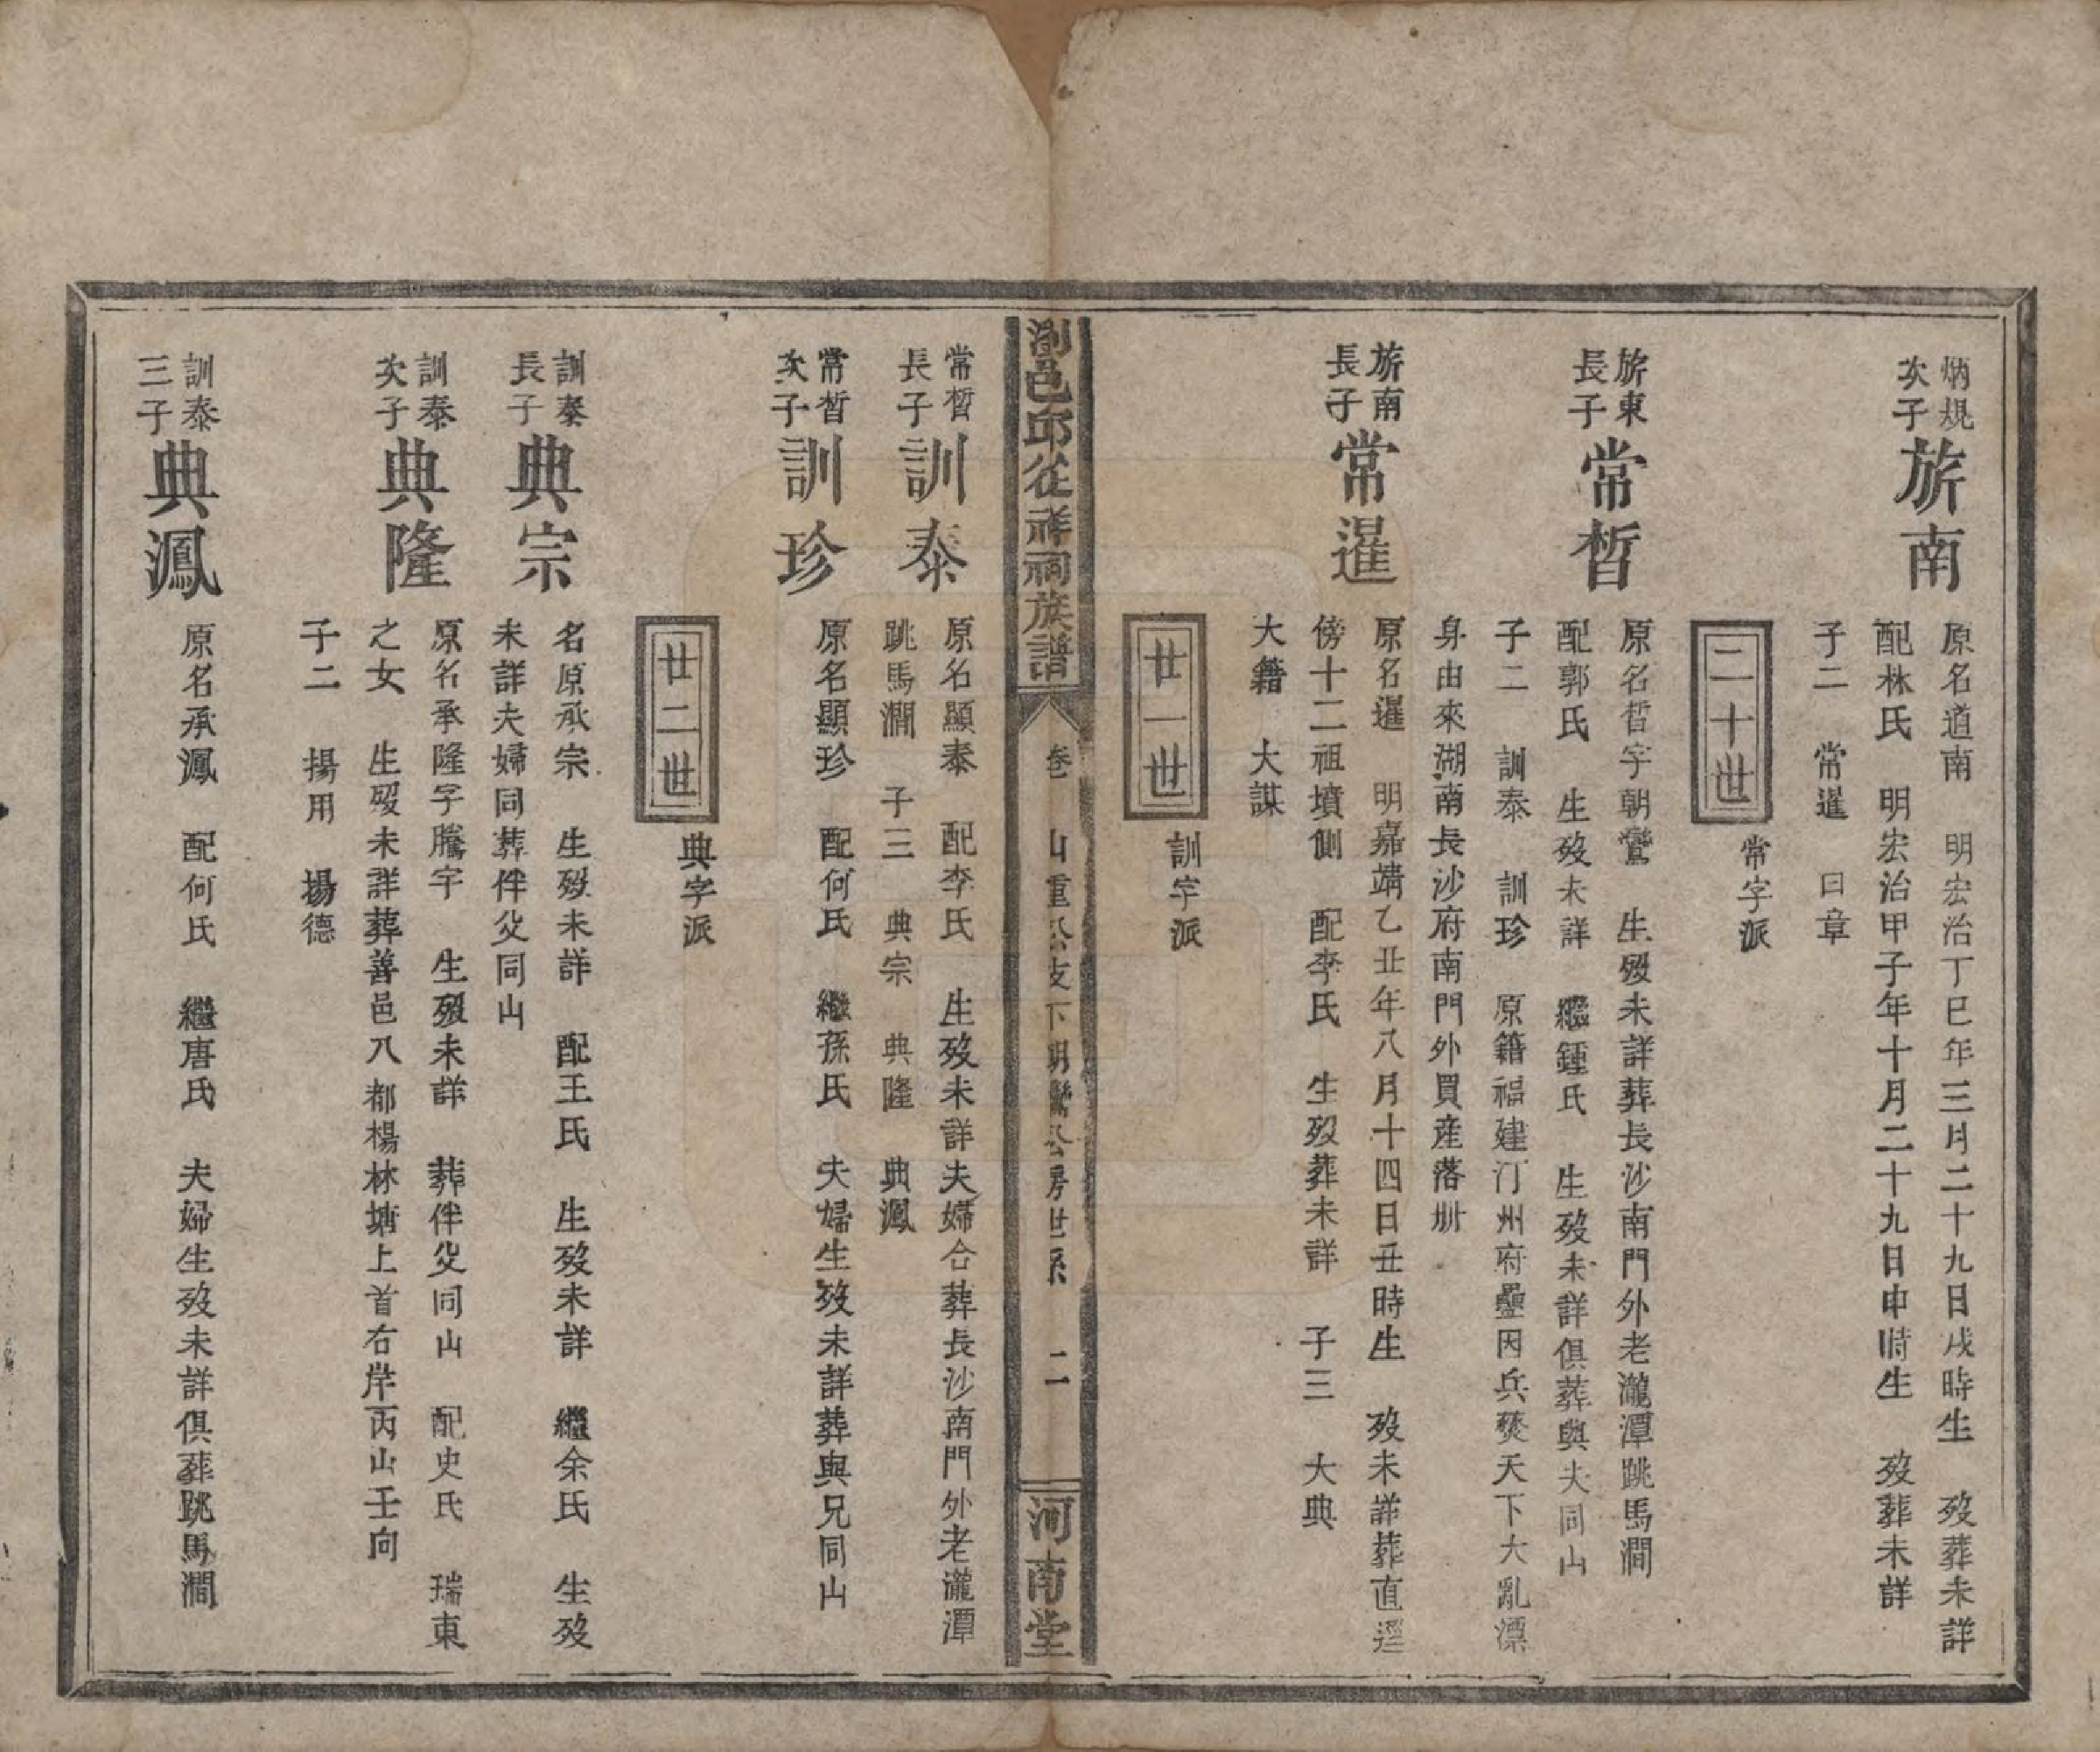 炳規
次子
旂南
原名道南　明宏治丁巳年三月二十九日戌時生　歿葬未詳
配林氏　明宏治甲子年十月二十九日申時生　歿葬未詳
子二　常暹　日章
二十世
常字派
旂東
長子
常晳
原名晳字朝鸞　生歿未詳葬長沙南門外老瀧潭跳馬澗
配郭氏　生歿未詳　繼鍾氏　生歿未詳俱葬與夫同山
子二　訓泰　訓珍　原籍福建汀州府因兵燹天下大亂漂
身由來湖南長沙府南門外買産落㘰
旂南
長子
常暹
原名暹　明嘉靖乙丑年八月十四日丑時生　歿未詳葬直逕
傍十二祖墳側　配李氏　生歿葬未詳　子三　大典
大籍　大謀
廿一世
訓字派
瀏邑邱從祥祠族譜
卷　山重公支下朝鸞公房世系　二
河南堂
常晳
長子
訓泰
原名顯泰　配李氏　生歿未詳夫婦合葬長沙南門外老瀧潭
跳馬澗　子三　典宗　典隆　典鳳
常晳
次子
訓珍
原名顯珍　配何氏　繼孫氏　夫婦生歿未詳葬與兄同山
廿二世
典字派
訓泰
長子
典宗
名原承宗　生歿未詳　配王氏　生歿未詳　繼余氏　生歿
未詳夫婦同葬伴父同山
訓泰
次子
典隆
原名承隆字騰宇　生歿未詳　葬伴父同山　配史氏　瑞東
之女　生歿未詳葬善邑八都楊林塘上首右岸丙山壬向
子二　揚用　揚德
訓泰
三子
典鳳
原名承鳳　配何氏　繼唐氏　夫婦生歿未詳俱葬跳馬澗